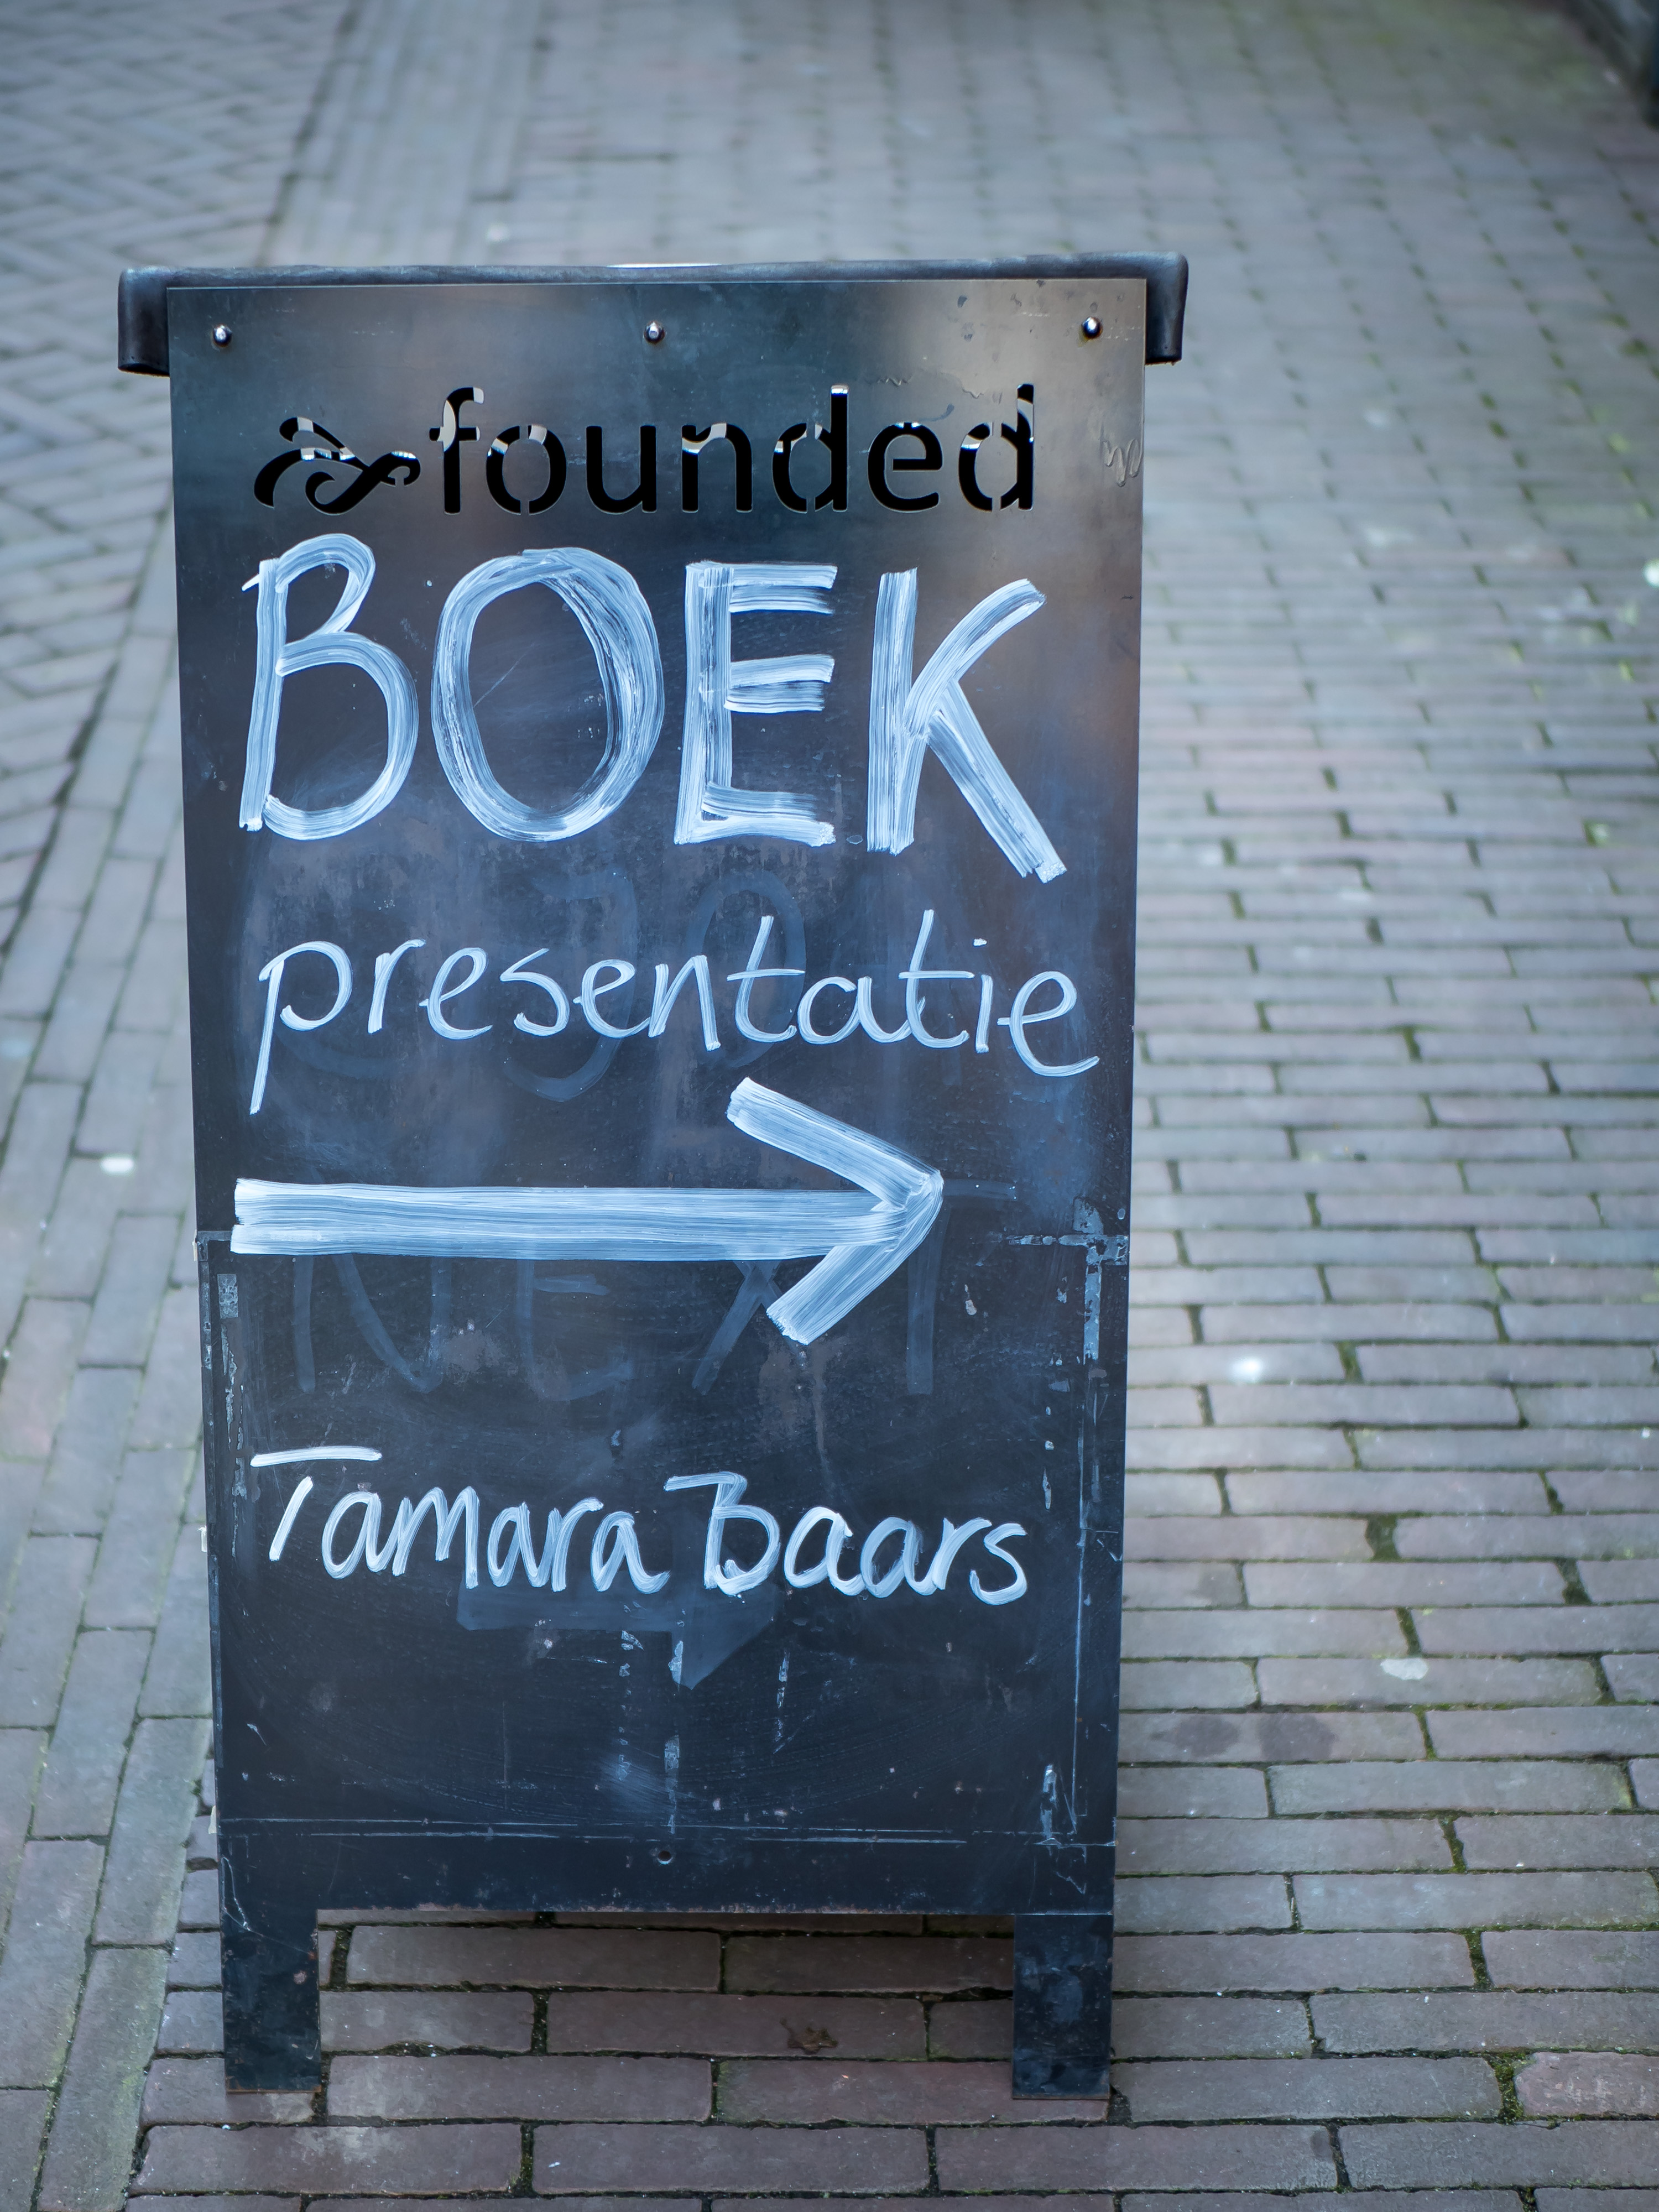 &founded
BOEK
presentatie
→
NEXT
Tamara Baars